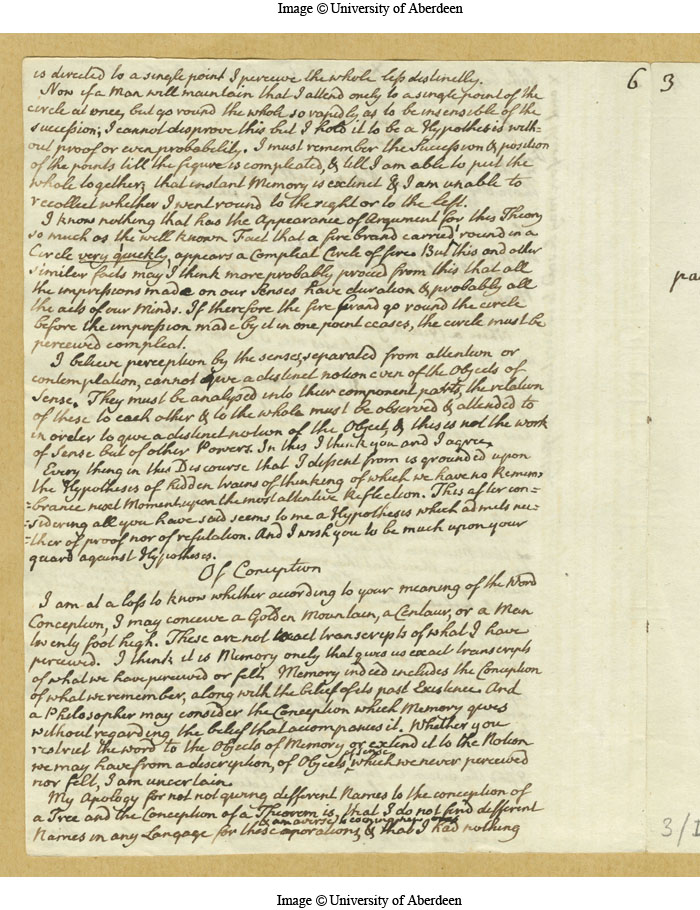 Image © University of Aberdeen
6 3
is directed to a single point I perceive the whole less distinctly.
Now if a Man will maintain that I attend onely to a single point of the
circle at once, but go round the whole so rapidly as to be insensible of the
succession; I cannot disprove this but I hold it to be a Hypothesis with-
out proof or even probability. I must remember the Succession & position
of the points till the figure is compleated, & till I am able to put the
whole together; that instant Memory is extinct & I am unable to
recollect whether I went round to the right or to the left.
I know nothing that has the Appearance of Argument for this Theory
so much as the well known Fact that a fire brand carried round in a
Circle very quickly, appears a Compleat Circle of fire. But this and other
similar facts may I think more probably proceed from this that all
the impressions made on our Senses have duration & probably all
the acts of our Minds. If therefore the fire brand go round the circle
before the impression made by it in one point ceases, the circle must be
perceived compleat.
I believe perception by the senses, separated from attention or
contemplation, cannot give a distinct notion even of the Objects of
Sense. They must be analysed into their component parts, the relation
of these to each other & to the whole must be observed & attended to
in order to give a distinct notion of the Object, & this is not the work
of Sense but of other Powers. In this I think you and I agree.
Every thing in this Discourse that I dissent from is grounded upon
the Hypothesis of hidden trains of thinking of which we have no Remem=
brance next Moment upon the most attentive Reflection. This after con=
=sidering all you have said seems to me a Hypothesis which admits nei=
=ther of proof nor of refutation. And I wish you to be much upon your
guard against Hypotheses.
Of Conception
I am at a loss to know whether according to your meaning of the Word
Conception, I may conceive a Golden Mountain, a Centaur, or a Man
twenty foot high. These are not exact transcripts of what I have
perceived. I think it is Memory onely that gives us exact transcripts
of what we have perceived or felt, Memory indeed includes the Conception
of what we remember, along with the belief of its past Existence. And
a Philosopher may consider the Conception which Memory gives
without regarding the belief that accompanies it. Whether you
restrict the word to the Objects of Memory or extend it to the Notion
we may have from a description, of Objects of sense which we never perceived
nor felt, I am uncertain.
My Apology for not not giving different Names to the conception of
a Tree and the Conception of a Theorem is, that I do not find different
Names in any Langage for these operations, & am averse to coining new ones & that I had nothing
pa
3/1
Image © University of Aberdeen